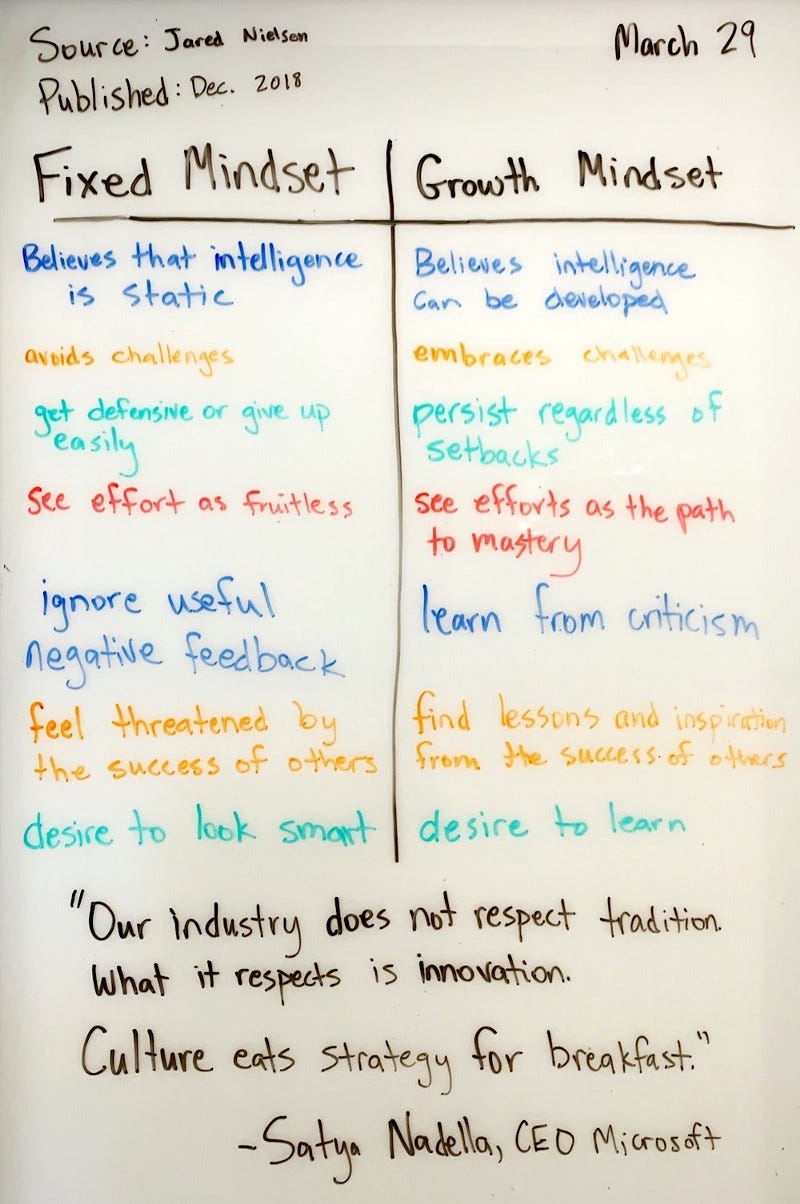 Source: Jared Nielsen
March 29
Published: Dec. 2018
Fixed Mindset
Believes that intelligence
is static
avoids challenges
get defensive or give up
easily
see effort as fruitless
ignore useful
negative feedback
feel threatened by
the success of others
desire to look smart
Growth Mindset
Believes intelligence
can be developed
embraces challenges
persist regardless of
setbacks
see efforts as the path
to mastery
learn from criticism
find lessons and inspiration
from the success of others
desire to learn
"Our industry does not respect tradition.
What it respects is innovation.
Culture eats strategy for breakfast."
-Satya Nadella, CEO Microsoft